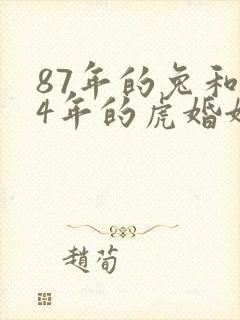 87年的兔和
4年的虎婚姻
趙荀